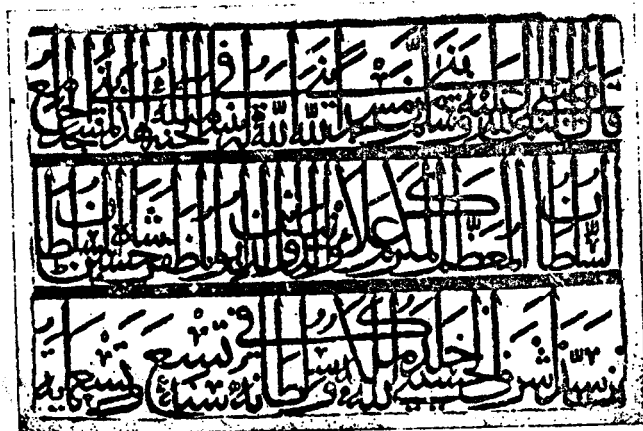 قال النبي صلى الله عليه وسلم من بنى مسجدا لله بنى الله له في الجنة هذا المسجد الجامع
السلطان المعظم المكرم علاء الدنيا والدين ابو المظفر حسين شاه السلطان
بن سيد اشرف الحسيني خلد الله ملكه وسلطانه في سنة تسع وتسعين وثمانماية